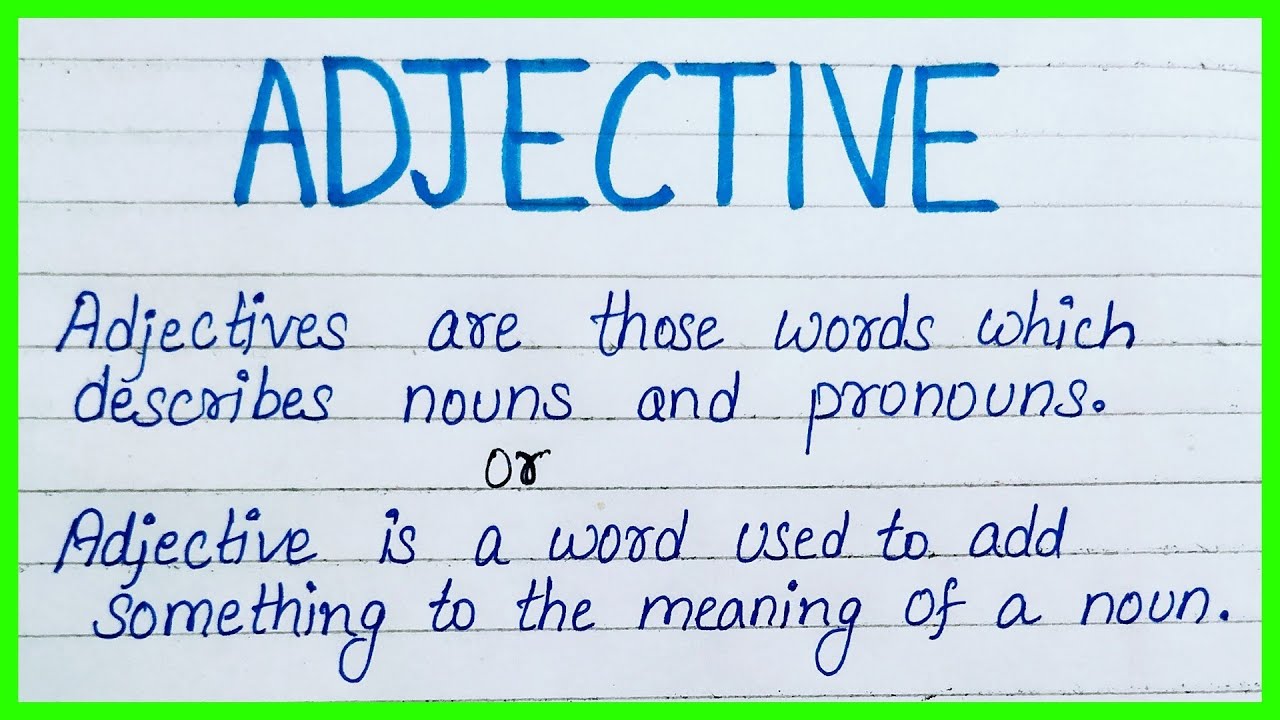 ADJECTIVE
Adjectives are those words which
describes nouns and pronouns.
Or
Adjective is a word used to add
something to the meaning of a noun.